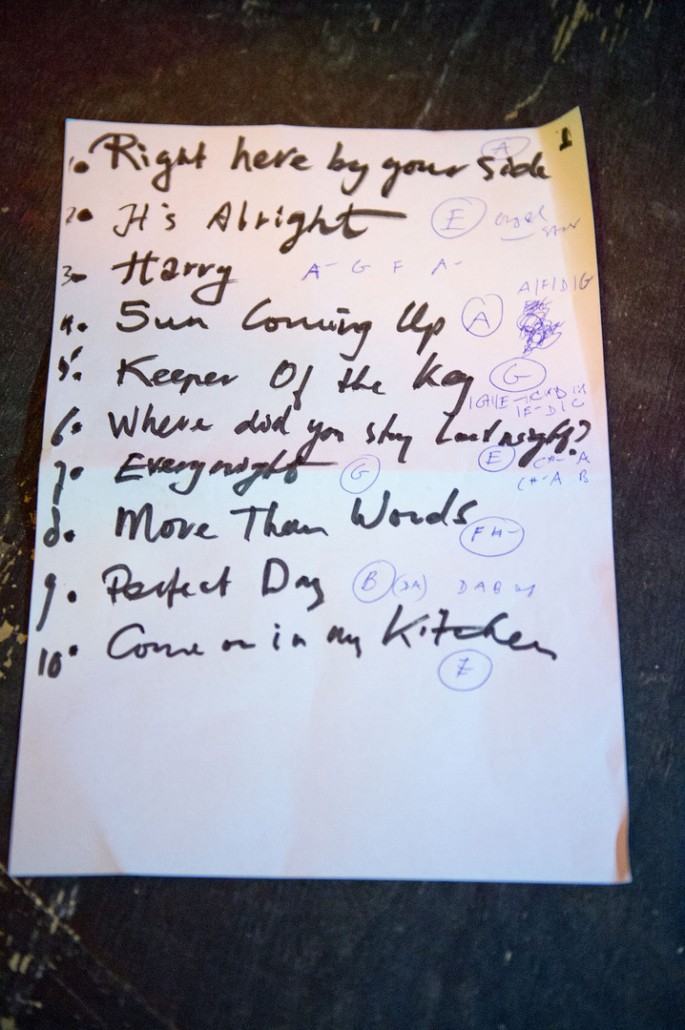 1. Right here by your side A 1
2. It's Alright E
3. Harry A- G F A-
A|F|D|G
4. Sun Coming Up A
5. Keeper Of the Key G
6. Where did you stay last night?
7. Everynight G E C#- A
C#-A B
8. More Than Words F#-
9. Perfect Day B (DA) D A B
10. Come on in my Kitchen
E